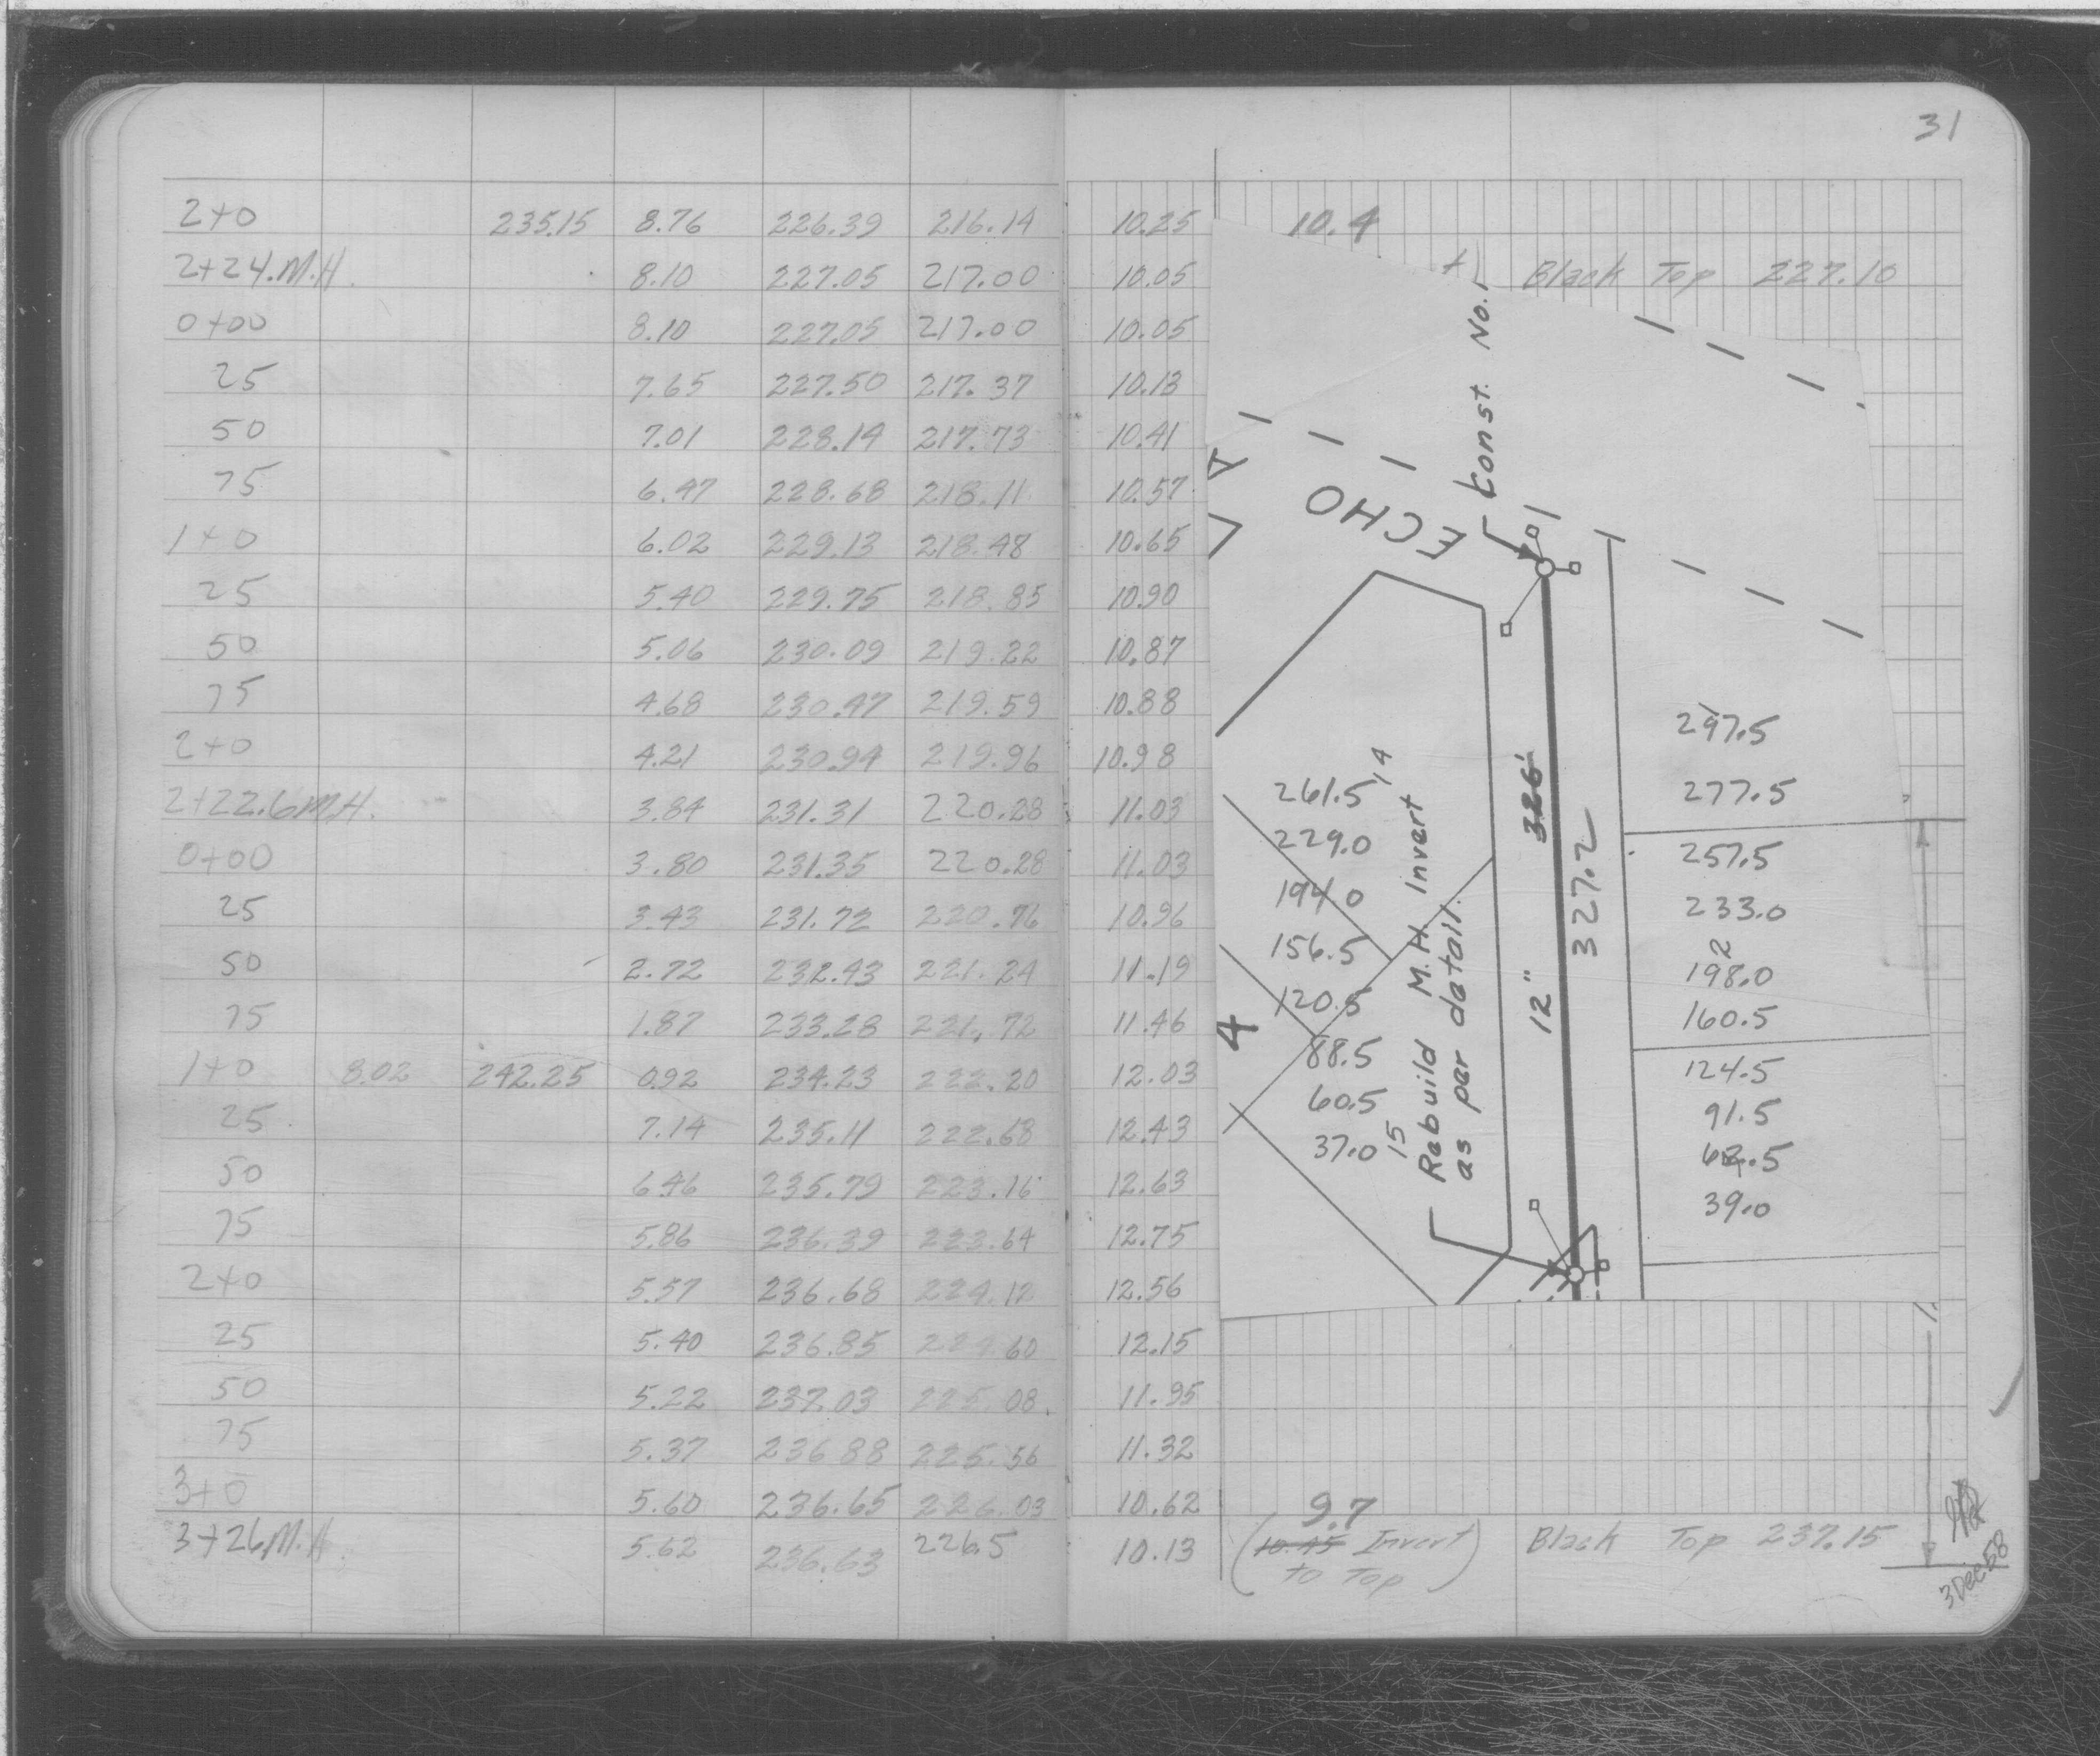 31
2+0 235.15 8.76 226.39 216.14 10.25 10.4
2+24.M.H. 8.10 227.05 217.00 10.05 Black Top 227.10
0+00 8.10 227.05 217.00 10.05
25 7.65 227.50 217.37 10.13
50 7.01 228.14 217.73 10.41
75 6.47 228.68 218.11 10.57
1+0 6.02 229.13 218.48 10.65
25 5.40 229.75 218.85 10.90
50 5.06 230.09 219.22 10.87
75 4.68 230.47 219.59 10.88
2+0 4.21 230.94 219.96 10.98
2+22.6 M.H. 3.84 231.31 220.28 11.03
0+00 3.80 231.35 220.28 11.03
25 3.43 231.72 220.76 10.96
50 2.72 232.43 221.24 11.19
75 1.87 233.28 221.72 11.46
1+0 8.02 242.25 0.92 234.23 222.20 12.03
25 7.14 235.11 222.68 12.43
50 6.46 235.79 223.16 12.63
75 5.86 236.39 223.64 12.75
2+0 5.57 236.68 224.12 12.56
25 5.40 236.85 224.60 12.15
50 5.22 237.03 225.08 11.95
75 5.37 236.88 225.56 11.32
3+0 5.60 236.65 226.03 10.62
3+26 M.H. 5.62 236.63 226.5 10.13
9.7
(10.45 Invert to Top) Black Top 237.15
Const. No. 1
ECHO
L A
261.5
229.0
194.0
156.5
120.5
88.5
60.5
37.0
14
15
4
Rebuild M.H. Invert
as per detail.
12" 326'
327.2
297.5
277.5
257.5
233.0
2
198.0
160.5
124.5
91.5
39.0
3 Dec. 58